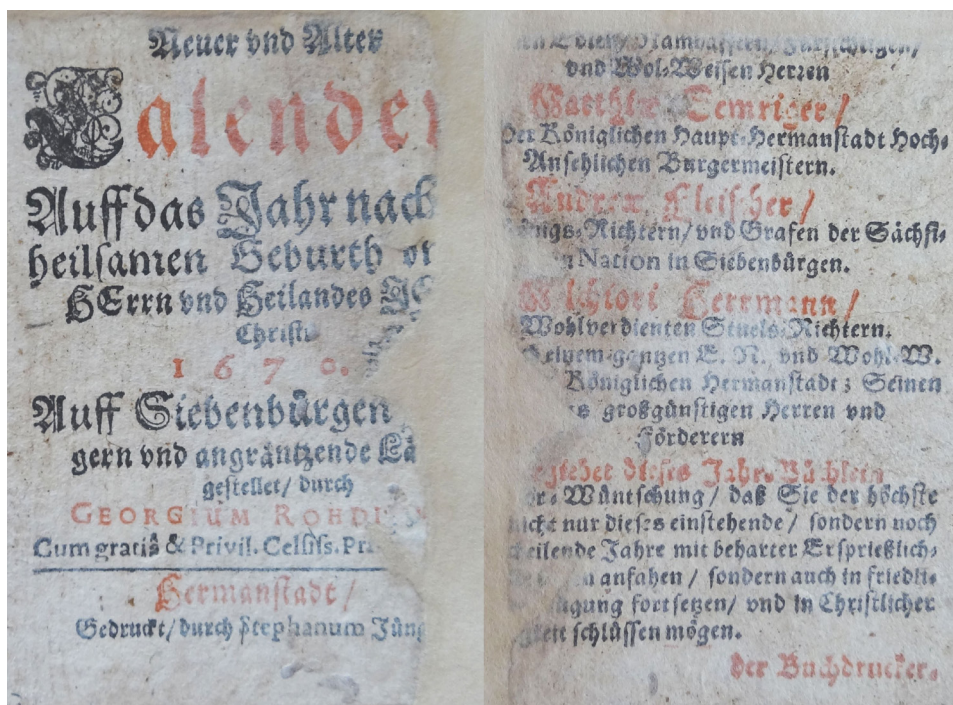 Neuer vnd Alter
Calender
Auff das Jahr nach
heilsamen Geburth
HErrn vnd Heilandes
Christi
1670.
Auff Siebenbürgen
gern vnd angräntzende Lä
gestellet/ durch
GEORGIUM ROHDI
Cum gratiâ & Privil. Celsiss. Pr
Hermanstadt/
Gedruckt/durch Stephanum Jüng
vnd Wol-Weisen Herren
Semriger/
Der Königlichen Haupt-Hermanstadt Hoch-
Ansehlichen Burgermeistern.
Andreæ Fleischer/
Königs-Richtern/vnd Grafen der Sächsi-
Nation in Siebenbürgen.
Melchiori Herrmann/
Wohlverdienten Stuels-Richtern.
gantzen E. N. vnd Wohl-W.
Königlichen Hermanstadt; Seinen
großgünstigen Herren vnd
Förderern
dieses Jahr-Büchlein
Wüntschung/ daß Sie der höchste
nicht nur dieses einstehende/ sondern noch
Jahre mit beharter Ersprießlich-
anfahen/ sondern auch in friedli-
fortsetzen/ vnd in Christlicher
schlüssen mögen.
der Buchdrucker.